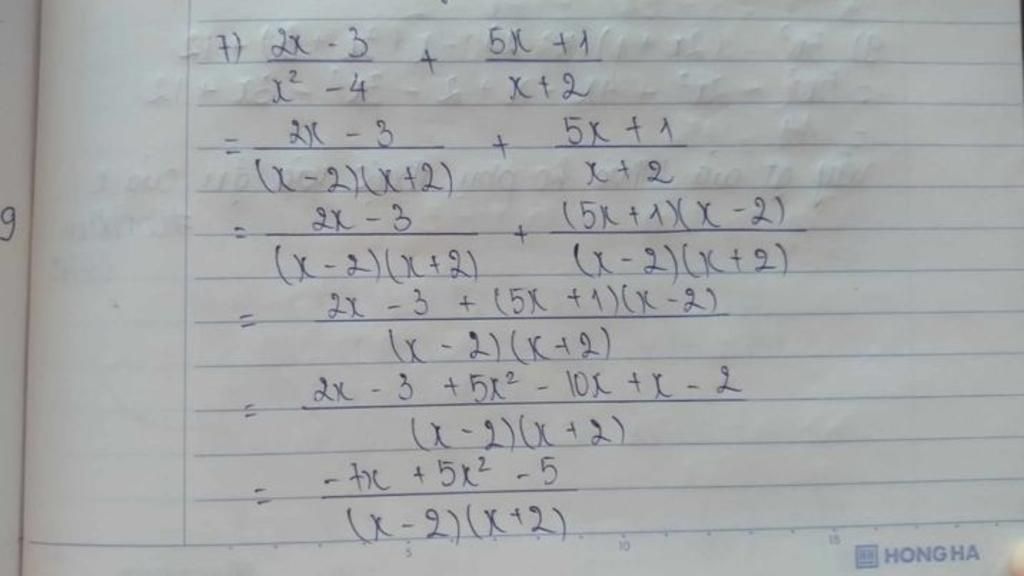 7) (2x - 3)/(x² - 4) + (5x + 1)/(x + 2)
= (2x - 3)/((x - 2)(x + 2)) + (5x + 1)/(x + 2)
9
= (2x - 3)/((x - 2)(x + 2)) + ((5x + 1)(x - 2))/((x - 2)(x + 2))
= (2x - 3 + (5x + 1)(x - 2))/((x - 2)(x + 2))
= (2x - 3 + 5x² - 10x + x - 2)/((x - 2)(x + 2))
= (-7x + 5x² - 5)/((x - 2)(x + 2))
5 10 15
HONG HA